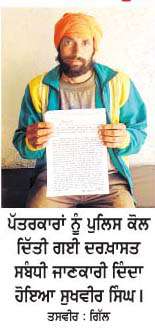 ਪੱਤਰਕਾਰਾਂ ਨੂੰ ਪੁਲਿਸ ਕੋਲ
ਦਿੱਤੀ ਗਈ ਦਰਖ਼ਾਸਤ
ਸਬੰਧੀ ਜਾਣਕਾਰੀ ਦਿੰਦਾ
ਹੋਇਆ ਸੁਖਵੀਰ ਸਿੰਘ।
ਤਸਵੀਰ : ਗਿੱਲ